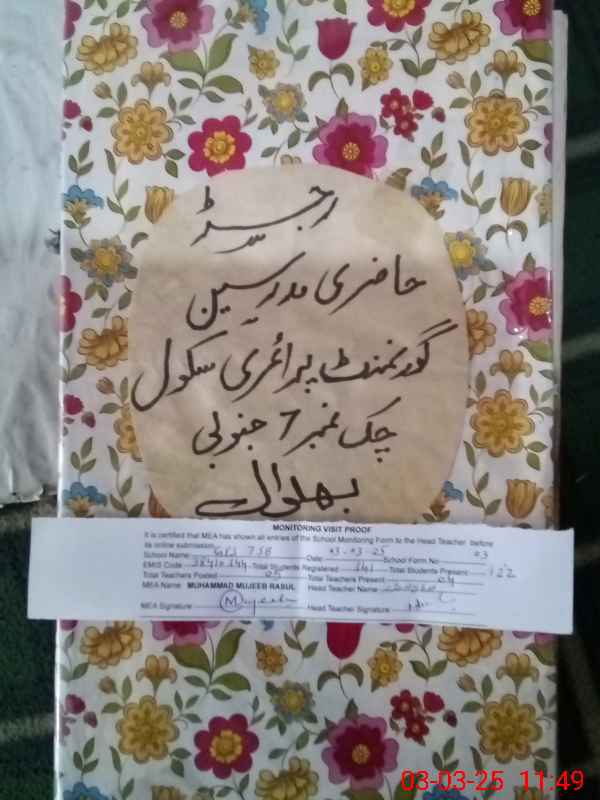 رجسٹر
حاضری مدرسین
گورنمنٹ پرائمری سکول
چک نمبر 7 جنوبی
بھلوال
MONITORING VISIT PROOF
It is certified that MEA has shown all entries of the School Monitoring Form to the Head Teacher before
its online submission
School Name: GPS 7SB Date: 03-03-25 School Form No: 03
EMIS Code: Total Students Registered 141 Total Students Present 122
Total Teachers Posted 05 Total Teachers Present 04
MEA Name MUHAMMAD MUJEEB RASUL Head Teacher Name
MEA Signature Mujeeb Head Teacher Signature
03-03-25 11:49